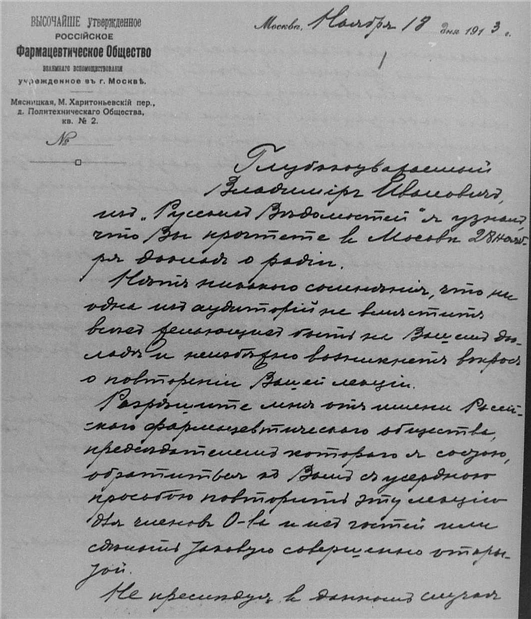 ВЫСОЧАЙШЕ Утвержденное
РОССІЙСКОЕ
Фармацевтическое Общество
взаимнаго вспомоществованія
учрежденное въ г. Москвѣ.
Мясницкая, М. Харитоньевскій пер.,
д. Политехническаго Общества,
кв. № 2.
№
Москва, Ноября 18 дня 1913 г.
Глубокоуважаемый
Владиміръ Ивановичъ,
изъ „Русскихъ Вѣдомостей" я узналъ,
что Вы прочтете въ Москвѣ 28 нояб-
ря докладъ о радіи.
Нѣтъ никакого сомнѣнія, что ни
одна изъ аудиторій не вмѣститъ
всѣхъ желающихъ быть на Вашемъ до-
кладѣ и неизбѣжно возникнетъ вопросъ
о повтореніи Вашей лекціи.
Разрѣшите мнѣ отъ имени Россій-
скаго фармацевтическаго общества,
предсѣдателемъ котораго я состою,
обратиться къ Вамъ съ усердною
просьбою повторить эту лекцію
для членовъ О-ва и ихъ гостей или
сдѣлать таковую совершенно откры-
той.
Не преслѣдуя въ данномъ случаѣ